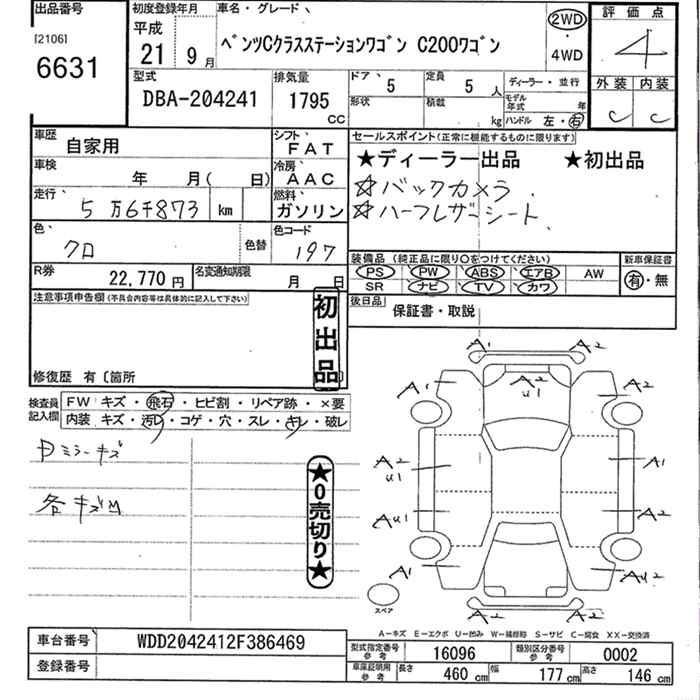 出品番号 初度登録年月 車名・グレード 評価点
[2106] 平成
6631 21年 9月 ベンツCクラスステーションワゴン C200ワゴン 2WD・4WD 4
型式 排気量 ドア 定員 ディーラー・並行 外装 内装
DBA-204241 1795 CC 5 5人 モデル年式 年 C C
形状 積載 kg ハンドル 左・右
車歴 自家用 シフト FAT セールスポイント(正常に機能するものに限ります)
車検 年 月( 日) 冷房 AAC ★ディーラー出品 ★初出品
走行 5万6千873 km 燃料 ガソリン ☆バックカメラ
☆ハーフレザーシート
色 クロ 色替 色コード 197
装備品(純正品に限り○をつけてください) 新車保証書
R券 22,770円 名変通知期限 月 日 PS PW ABS エアB AW 有・無
SR ナビ TV カワ
注意事項申告欄(不具合内容等は具体的に記入して下さい) 初出品 後日品 保証書・取説
修復歴 有〔箇所 〕
検査員記入欄 FW キズ・飛石・ヒビ割・リペア跡・×要
内装 キズ・汚れ・コゲ・穴・スレ・キレ・破レ
ミラーキズ
各キズ
★0売切り★
A2 A2
A1 A2 U1 A2
A2 U1 A1
AU1 A2
A1 AU2
A2 A2
スペア
A－キズ E－エクボ U－凹み W－補修跡 S－サビ C－腐食 XX－交換済
車台番号 WDD2042412F386469 型式指定番号 参考 16096 類別区分番号 参考 0002
登録番号 車庫証明用 参考 長さ 460cm 幅 177cm 高さ 146cm